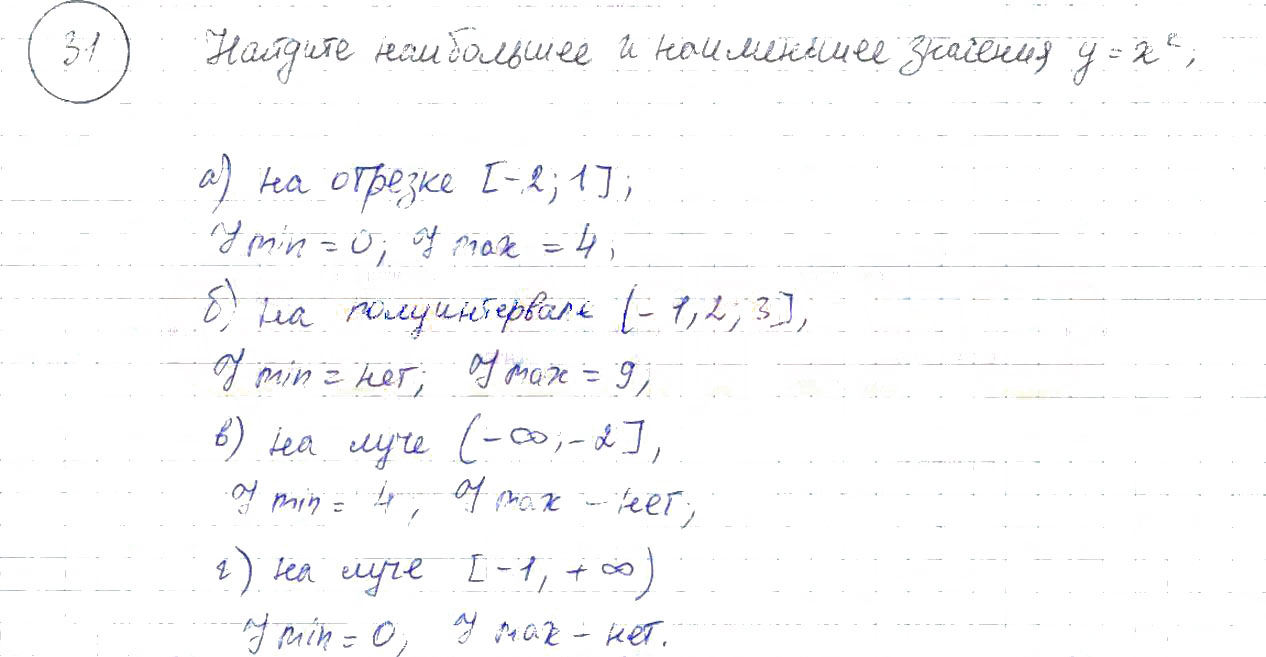 31 Найдите наибольшее и наименьшее значения y = x²,
а) на отрезке [-2; 1];
y min = 0; y max = 4;
б) на полуинтервале (-1,2; 3],
y min = нет; y max = 9,
в) на луче (-∞; -2],
y min = 4, y max - нет;
г) на луче [-1, +∞)
y min = 0, y max - нет.